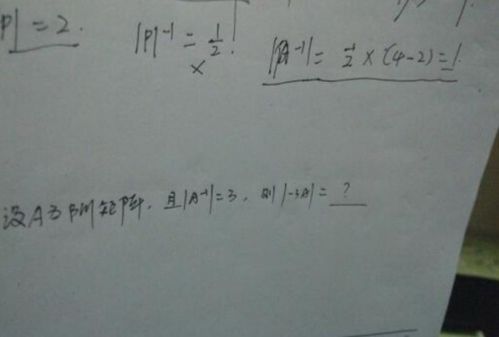 |P| = 2.
|P|⁻¹ = 1/2 !
×
|A⁻¹| = 1/2 × (4-2) = 1.
设A为n阶矩阵,且|A⁻¹|=3,则|-3A|= ?